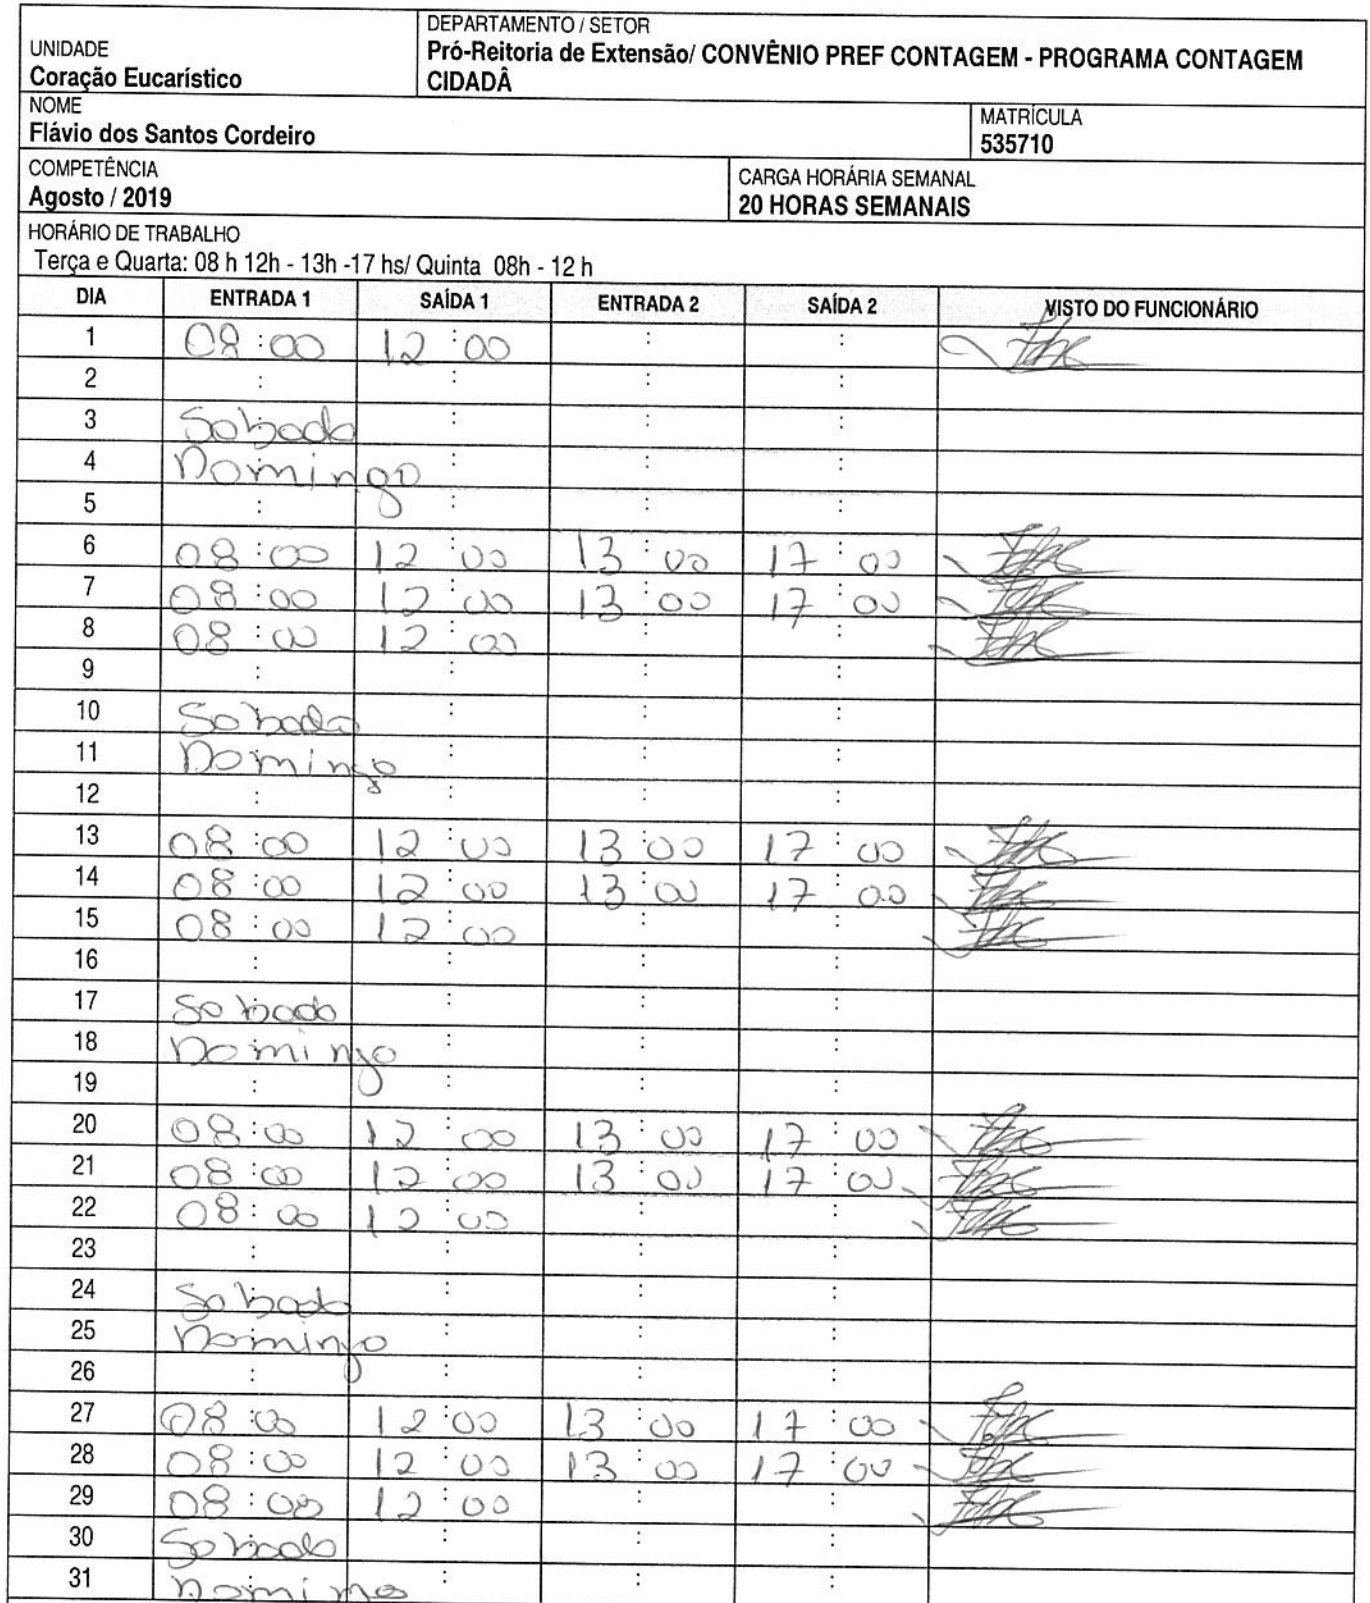 UNIDADE
Coração Eucarístico
DEPARTAMENTO / SETOR
Pró-Reitoria de Extensão/ CONVÊNIO PREF CONTAGEM - PROGRAMA CONTAGEM
CIDADÂ
NOME
Flávio dos Santos Cordeiro
MATRÍCULA
535710
COMPETÊNCIA
Agosto / 2019
CARGA HORÁRIA SEMANAL
20 HORAS SEMANAIS
HORÁRIO DE TRABALHO
Terça e Quarta: 08 h 12h - 13h -17 hs/ Quinta 08h - 12 h
DIA ENTRADA 1 SAÍDA 1 ENTRADA 2 SAÍDA 2 VISTO DO FUNCIONÁRIO
1 08:00 12:00 : :
2 : : : :
3 Sabado : : :
4 Domingo : : :
5 : : : :
6 08:00 12:00 13:00 17:00
7 08:00 12:00 13:00 17:00
8 08:00 12:00 : :
9 : : : :
10 Sabado : : :
11 Domingo : : :
12 : : : :
13 08:00 12:00 13:00 17:00
14 08:00 12:00 13:00 17:00
15 08:00 12:00 : :
16 : : : :
17 Sabado : : :
18 Domingo : : :
19 : : : :
20 08:00 12:00 13:00 17:00
21 08:00 12:00 13:00 17:00
22 08:00 12:00 : :
23 : : : :
24 Sabado : : :
25 Domingo : : :
26 : : : :
27 08:00 12:00 13:00 17:00
28 08:00 12:00 13:00 17:00
29 08:00 12:00 : :
30 Sabado : : :
31 Domingo : : :